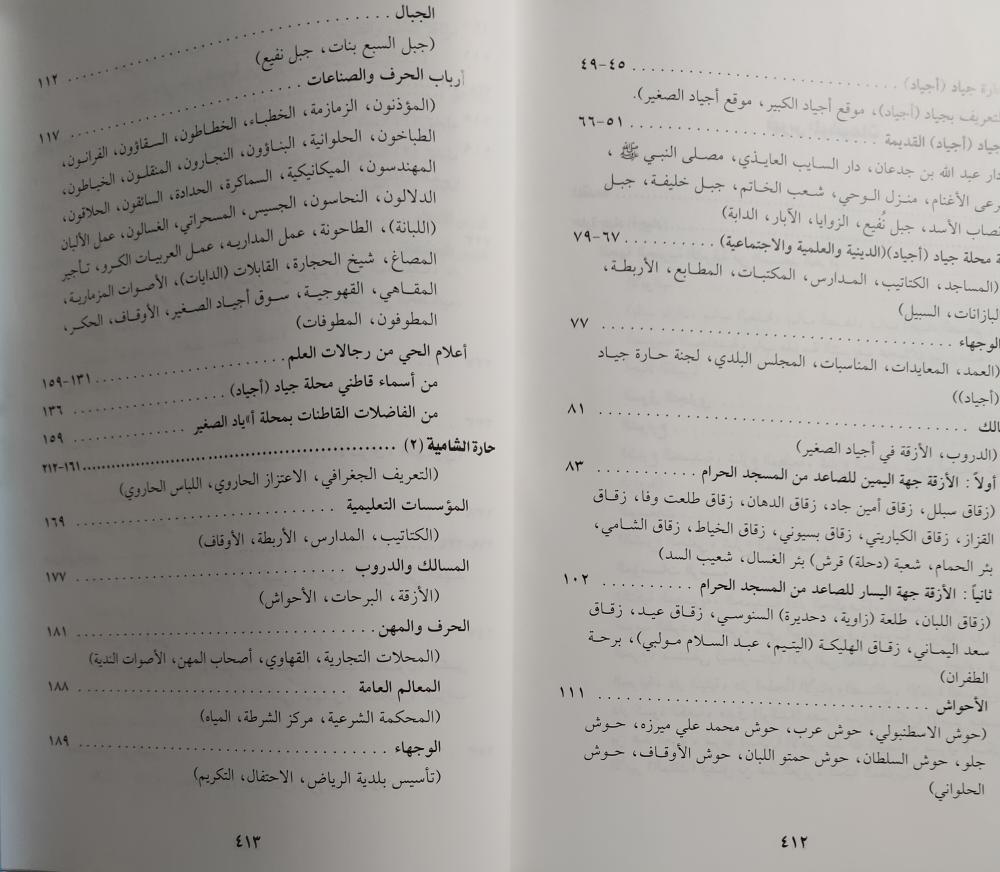 جياد (أجياد) ٤٥-٤٩
التعريف بجياد (أجياد)، موقع أجياد الكبير، موقع أجياد الصغير).
(أجياد) القديمة ٥١-٦٦
دار عبد الله بن جدعان، دار السايب العايذي، مصلى النبي ﷺ ،
الأغنام، منزل الوحي، شعب الخاتم، جبل خليفة، جبل
الأسد، جبل نُفيع، الزوايا، الآبار، الدابة)
محلة جياد (أجياد)(الدينية والعلمية والاجتماعية) ٦٧-٧٩
(المساجد، الكتاتيب، المدارس، المكتبات، المطابع، الأربطة،
البازانات، السبيل)
الوجهاء ٧٧
(العمد، المعايدات، المناسبات، المجلس البلدي، لجنة حارة جياد
(أجياد))
٨١
(الدروب، الأزقة في أجياد الصغير)
أولاً : الأزقة جهة اليمين للصاعد من المسجد الحرام ٨٣
(زقاق سبلل، زقاق أمين جاد، زقاق الدهان، زقاق طلعت وفا، زقاق
القزاز، زقاق الكباريتي، زقاق بسيوني، زقاق الخياط، زقاق الشامي،
بئر الحمام، شعبة (دحلة) قرش) بئر الغسال، شعيب السد)
ثانياً : الأزقة جهة اليسار للصاعد من المسجد الحرام ١٠٢
(زقاق اللبان، طلعة (زاوية، دحديرة) السنوسي، زقاق عيد، زقاق
سعد اليماني، زقاق الهليكة (اليتيم، عبد السلام مولبي)، برحة
الطفران)
الأحواش ١١١
(حوش الاسطنبولي، حوش عرب، حوش محمد علي ميرزه، حوش
جلو، حوش السلطان، حوش حمتو اللبان، حوش الأوقاف، حوش
الحلواني)
٤١٢
الجبال ١١٢
(جبل السبع بنات، جبل نفيع)
أرباب الحرف والصناعات ١١٧
(المؤذنون، الزمازمة، الخطباء، الخطاطون، السقاؤون، الفرانون،
الطباخون، الحلوانية، البناؤون، النجارون، المنقلون، الخياطون،
المهندسون، الميكانيكية، السماكرة، الحدادة، السائقون، الحلاقون،
الدلالون، النحاسون، الجسيس، المسحراتي، الغسالون، عمل الألبان
(اللبانة)، الطاحونة، عمل المداريه، عمل العربيات الكرو، تأجير
المصاغ، شيخ الحجارة، القابلات (الدايات)، الأصوات المزمارية،
المقاهي، القهوجية، سوق أجياد الصغير، الأوقاف، الحكر،
المطوفون، المطوفات)
أعلام الحي من رجالات العلم ١٣١-١٥٩
من أسماء قاطني محلة جياد (أجياد) ١٣٦
من الفاضلات القاطنات بمحلة الصغير ١٥٩
حارة الشامية (٢) ١٦١-٢١٢
(التعريف الجغرافي، الاعتزاز الحاروي، اللباس الحاروي)
المؤسسات التعليمية ١٦٩
(الكتاتيب، المدارس، الأربطة، الأوقاف)
المسالك والدروب ١٧٧
(الأزقة، البرحات، الأحواش)
الحرف والمهن ١٨١
(المحلات التجارية، القهاوي، أصحاب المهن، الأصوات الندية)
المعالم العامة ١٨٨
(المحكمة الشرعية، مركز الشرطة، المياه)
الوجهاء ١٨٩
(تأسيس بلدية الرياض، الاحتفال، التكريم)
٤١٣